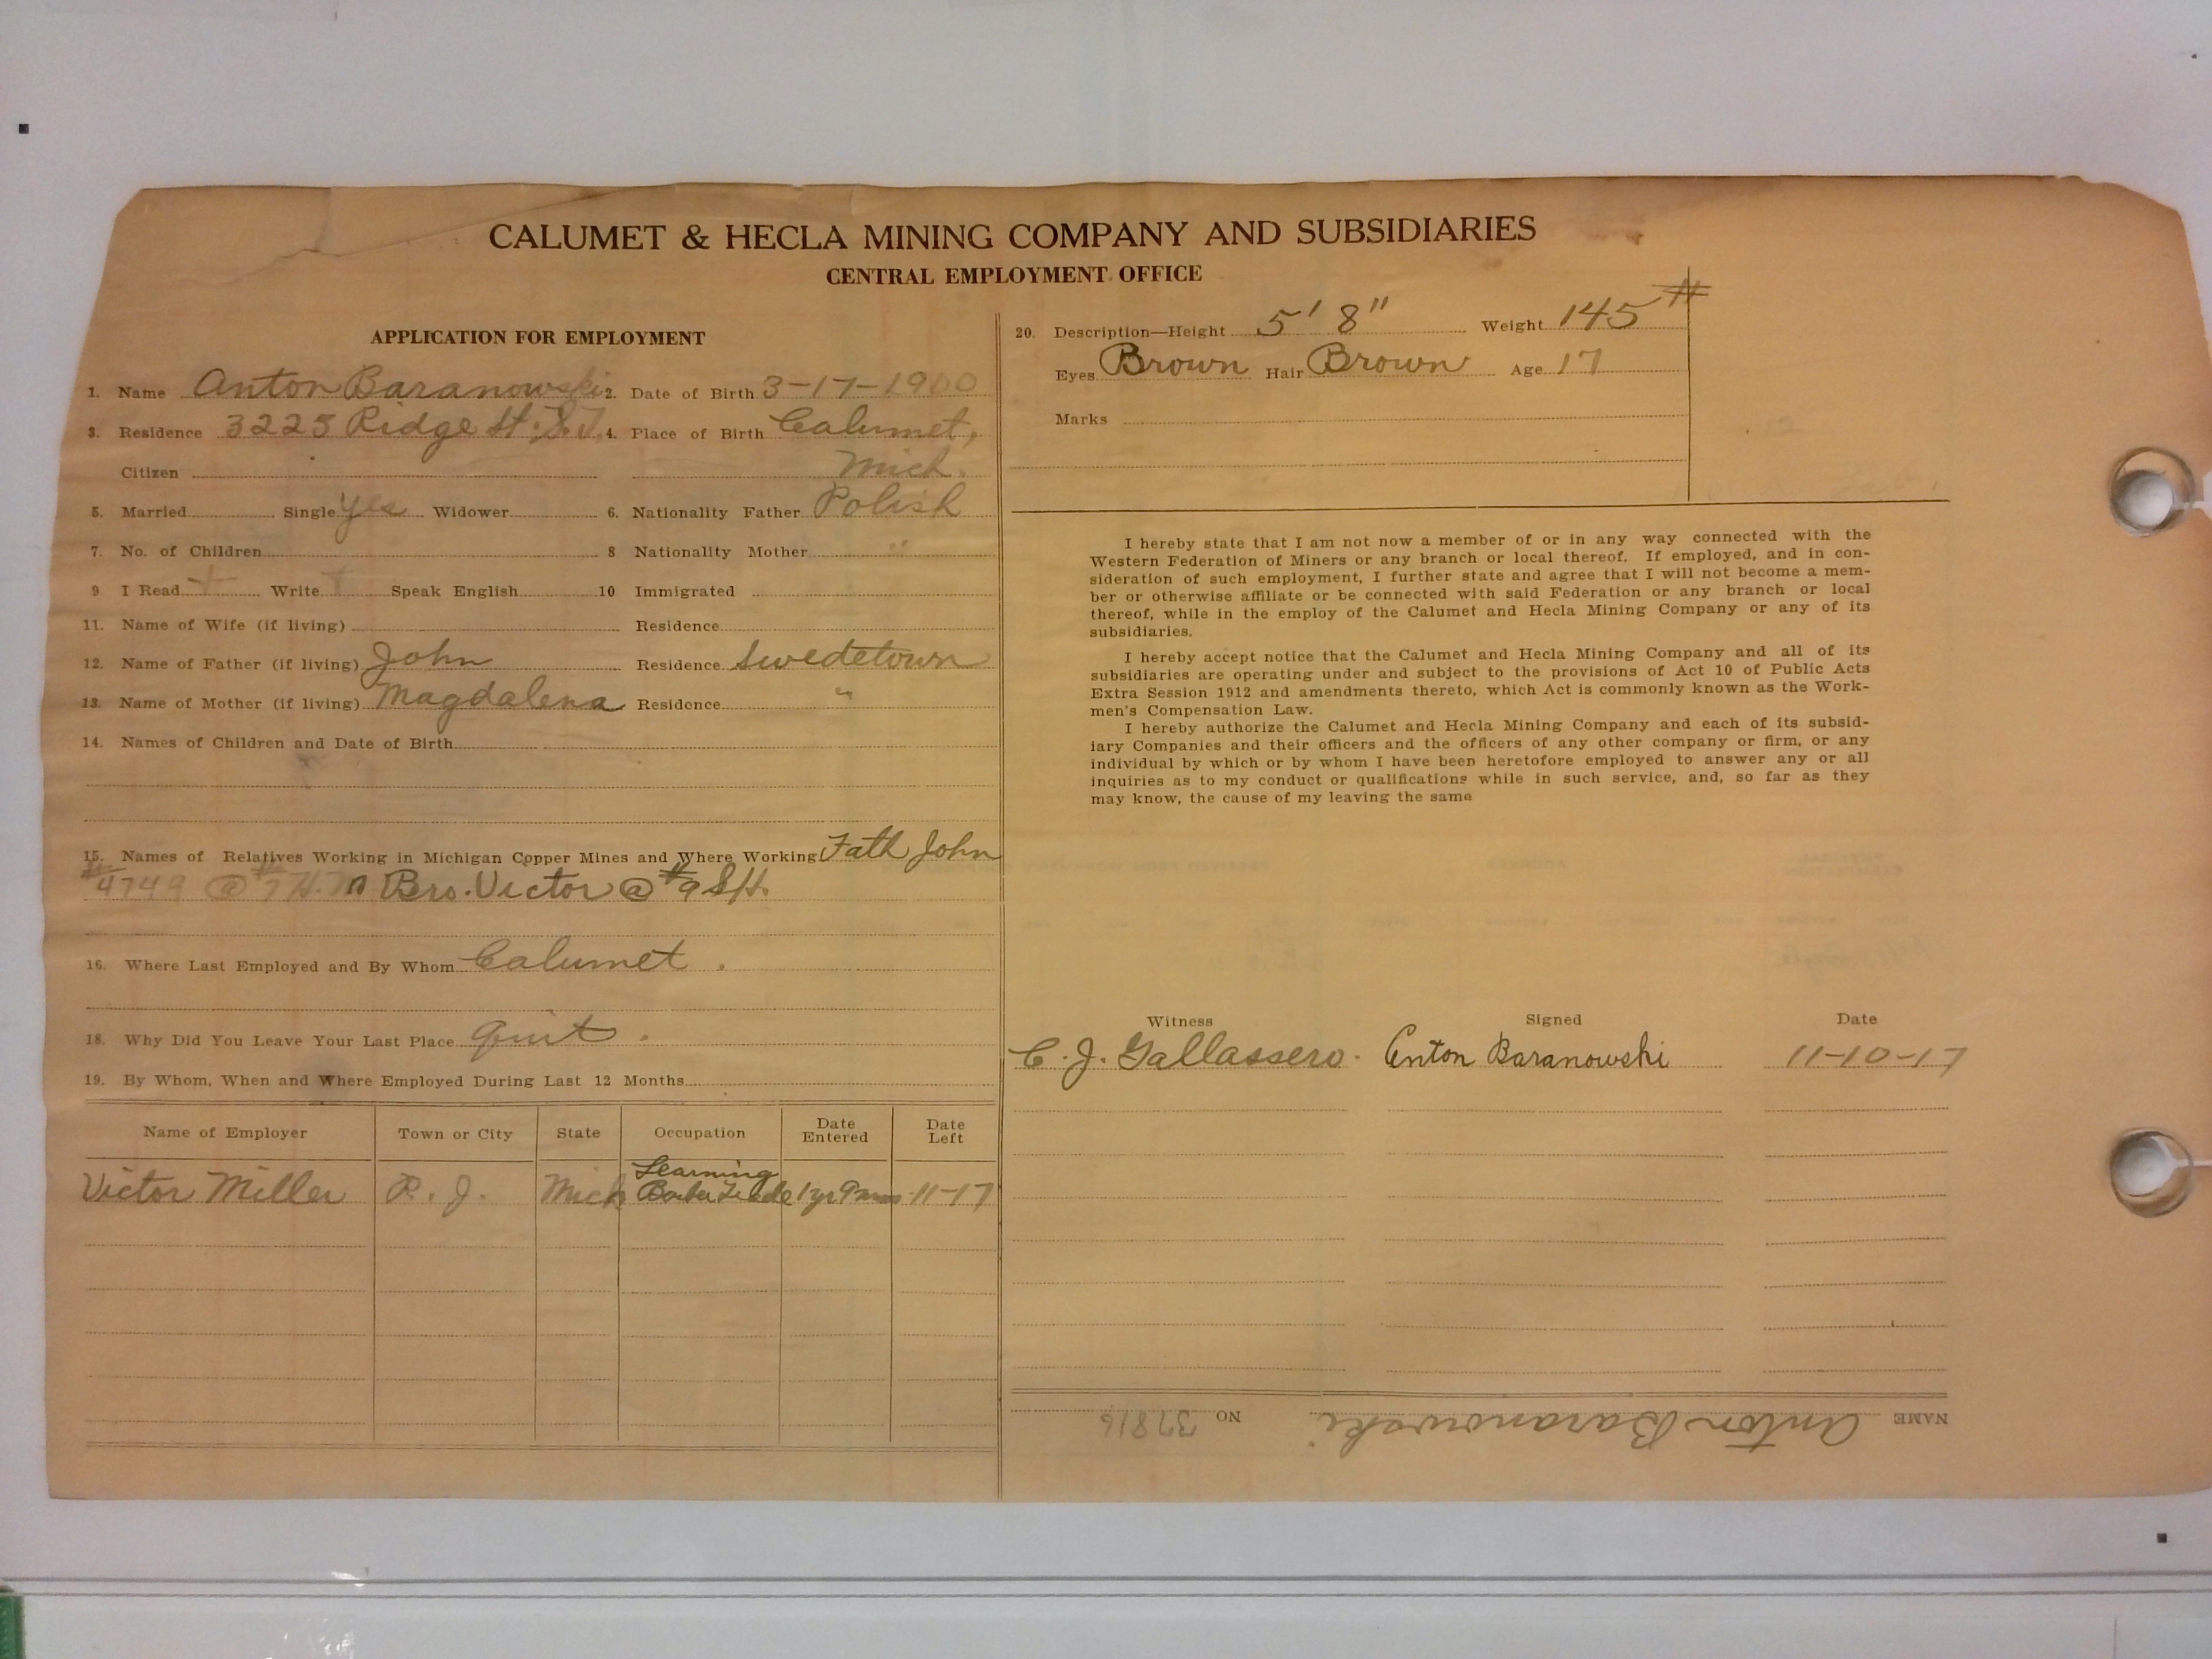 CALUMET & HECLA MINING COMPANY AND SUBSIDIARIES
CENTRAL EMPLOYMENT OFFICE
APPLICATION FOR EMPLOYMENT
1. Name Anton Baranowski 2. Date of Birth 3-17-1900
3. Residence 3225 Ridge St. 4. Place of Birth Calumet,
Citizen Mich.
5. Married Single Yes Widower 6. Nationality Father Polish
7. No. of Children 8 Nationality Mother "
9 I Read + Write + Speak English 10 Immigrated
11. Name of Wife (if living) Residence
12. Name of Father (if living) John Residence Swedetown
13. Name of Mother (if living) Magdalena Residence "
14. Names of Children and Date of Birth
15. Names of Relatives Working in Michigan Copper Mines and Where Working Fath John
#4749 @ #7 Bro. Victor @ #9
16. Where Last Employed and By Whom Calumet.
18. Why Did You Leave Your Last Place quit.
19. By Whom, When and Where Employed During Last 12 Months
Name of Employer Town or City State Occupation Date Entered Date Left
Victor Miller R. J. Mich Learning Barber Trade 1 yr 9 mos 11-17
20. Description—Height 5' 8" Weight 145 #
Eyes Brown Hair Brown Age 17
Marks
I hereby state that I am not now a member of or in any way connected with the
Western Federation of Miners or any branch or local thereof. If employed, and in con-
sideration of such employment, I further state and agree that I will not become a mem-
ber or otherwise affiliate or be connected with said Federation or any branch or local
thereof, while in the employ of the Calumet and Hecla Mining Company or any of its
subsidiaries.
I hereby accept notice that the Calumet and Hecla Mining Company and all of its
subsidiaries are operating under and subject to the provisions of Act 10 of Public Acts
Extra Session 1912 and amendments thereto, which Act is commonly known as the Work-
men's Compensation Law.
I hereby authorize the Calumet and Hecla Mining Company and each of its subsid-
iary Companies and their officers and the officers of any other company or firm, or any
individual by which or by whom I have been heretofore employed to answer any or all
inquiries as to my conduct or qualifications while in such service, and, so far as they
may know, the cause of my leaving the same
Witness Signed Date
C. J. Gallassero. Anton Baranowski 11-10-17
NAME Anton Baranowski NO 37816